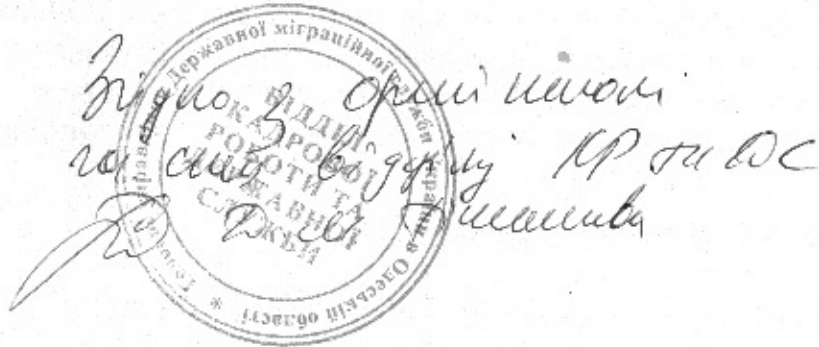 Згідно з оригіналом
відділу КР та ДС
Головне управління Державної міграційної служби України в Одеській області *
ВІДДІЛ
КАДРОВОЇ
РОБОТИ ТА
ДЕРЖАВНОЇ
СЛУЖБИ